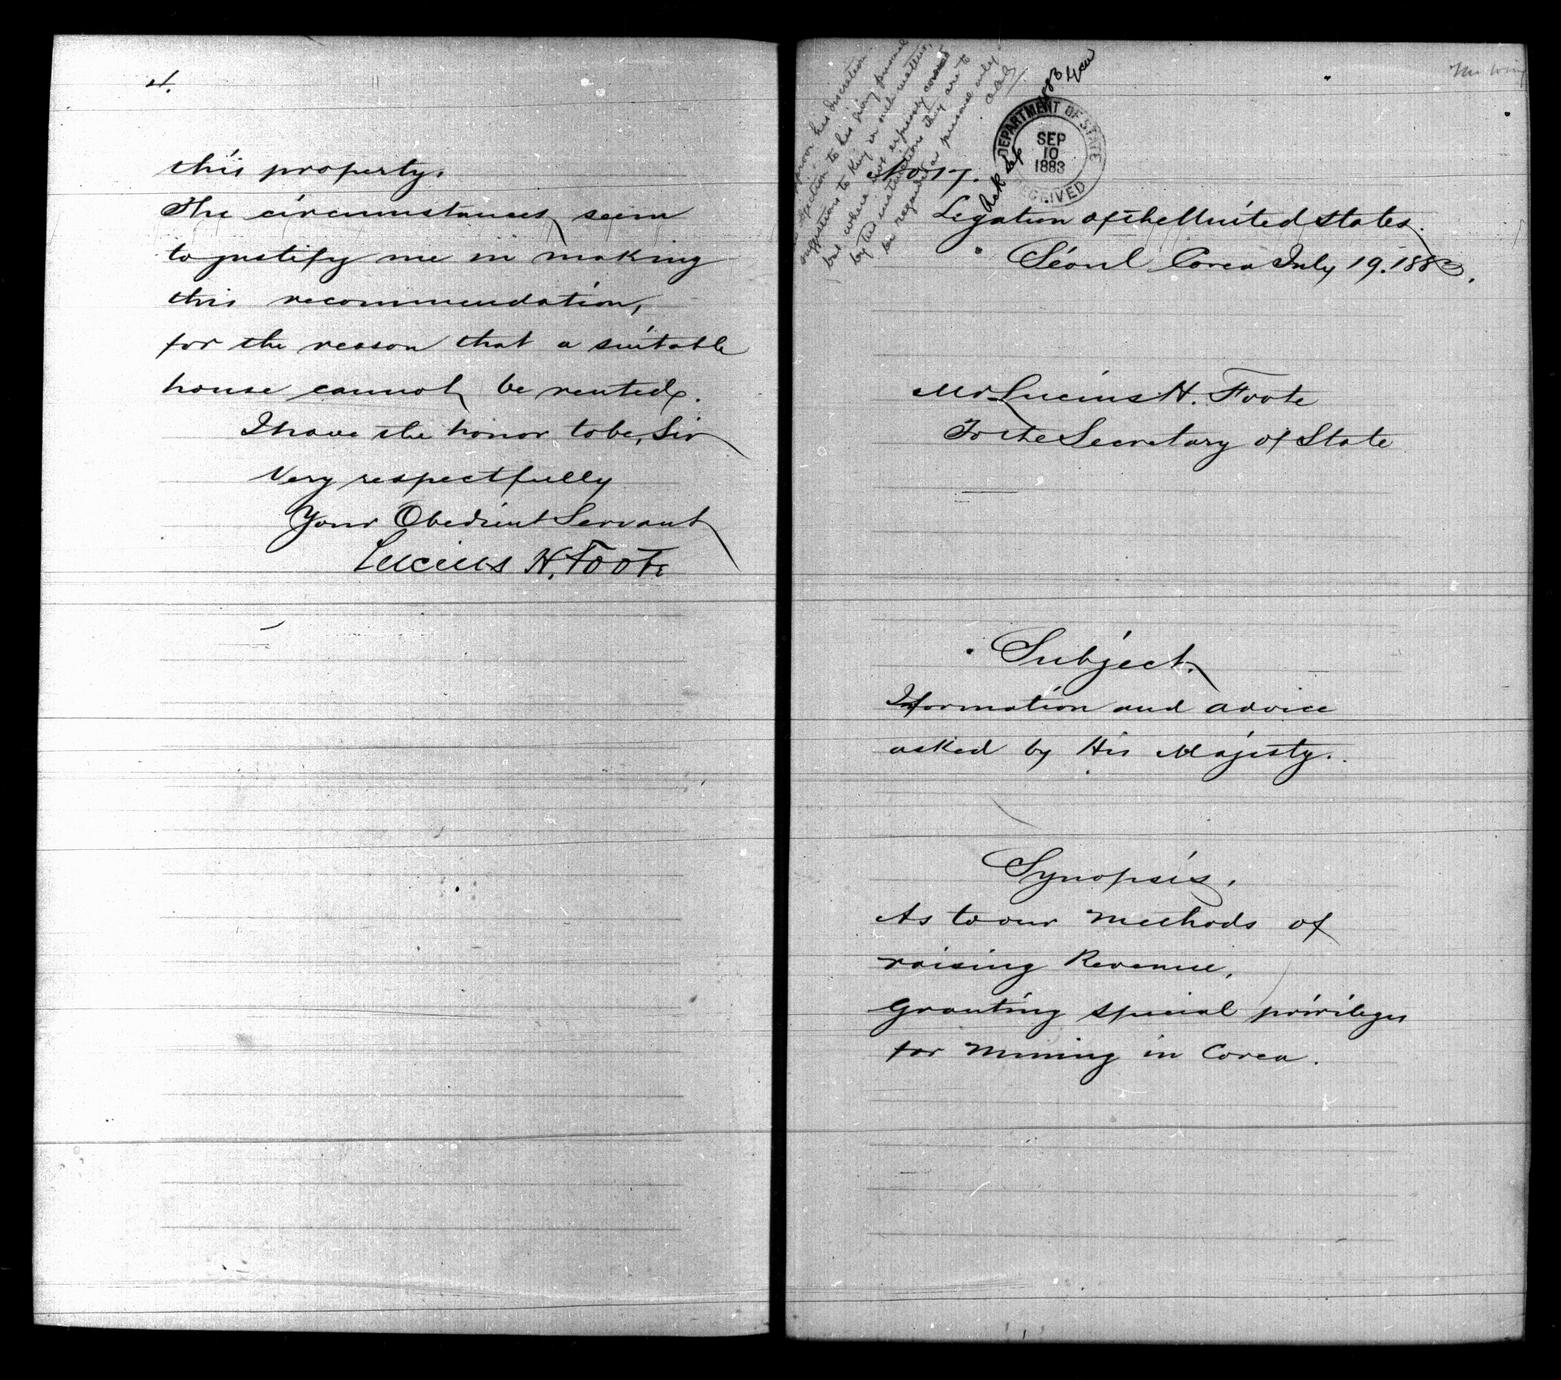 4.
this property.
The circumstances seem
to justify me in making
this recommendation,
for the reason that a suitable
house cannot be rented.
I have the honor to be, Sir
Very respectfully
Your Obedient Servant
Lucius H. Foote
his discretion
to his giving personal
suggestions to King in such matters,
but where not expressly covered
by his instructions they are to
be regarded as personal only.
DEPARTMENT OF STATE
SEP
10
1883
RECEIVED
No. 17.
Legation of the United States.
Séoul Corea July 19. 1883.
Mr Lucius H. Foote
To the Secretary of State
Subject.
Information and advice
asked by His Majesty.
Synopsis.
As to our Methods of
raising Revenue,
Granting special privileges
for Mining in Corea.